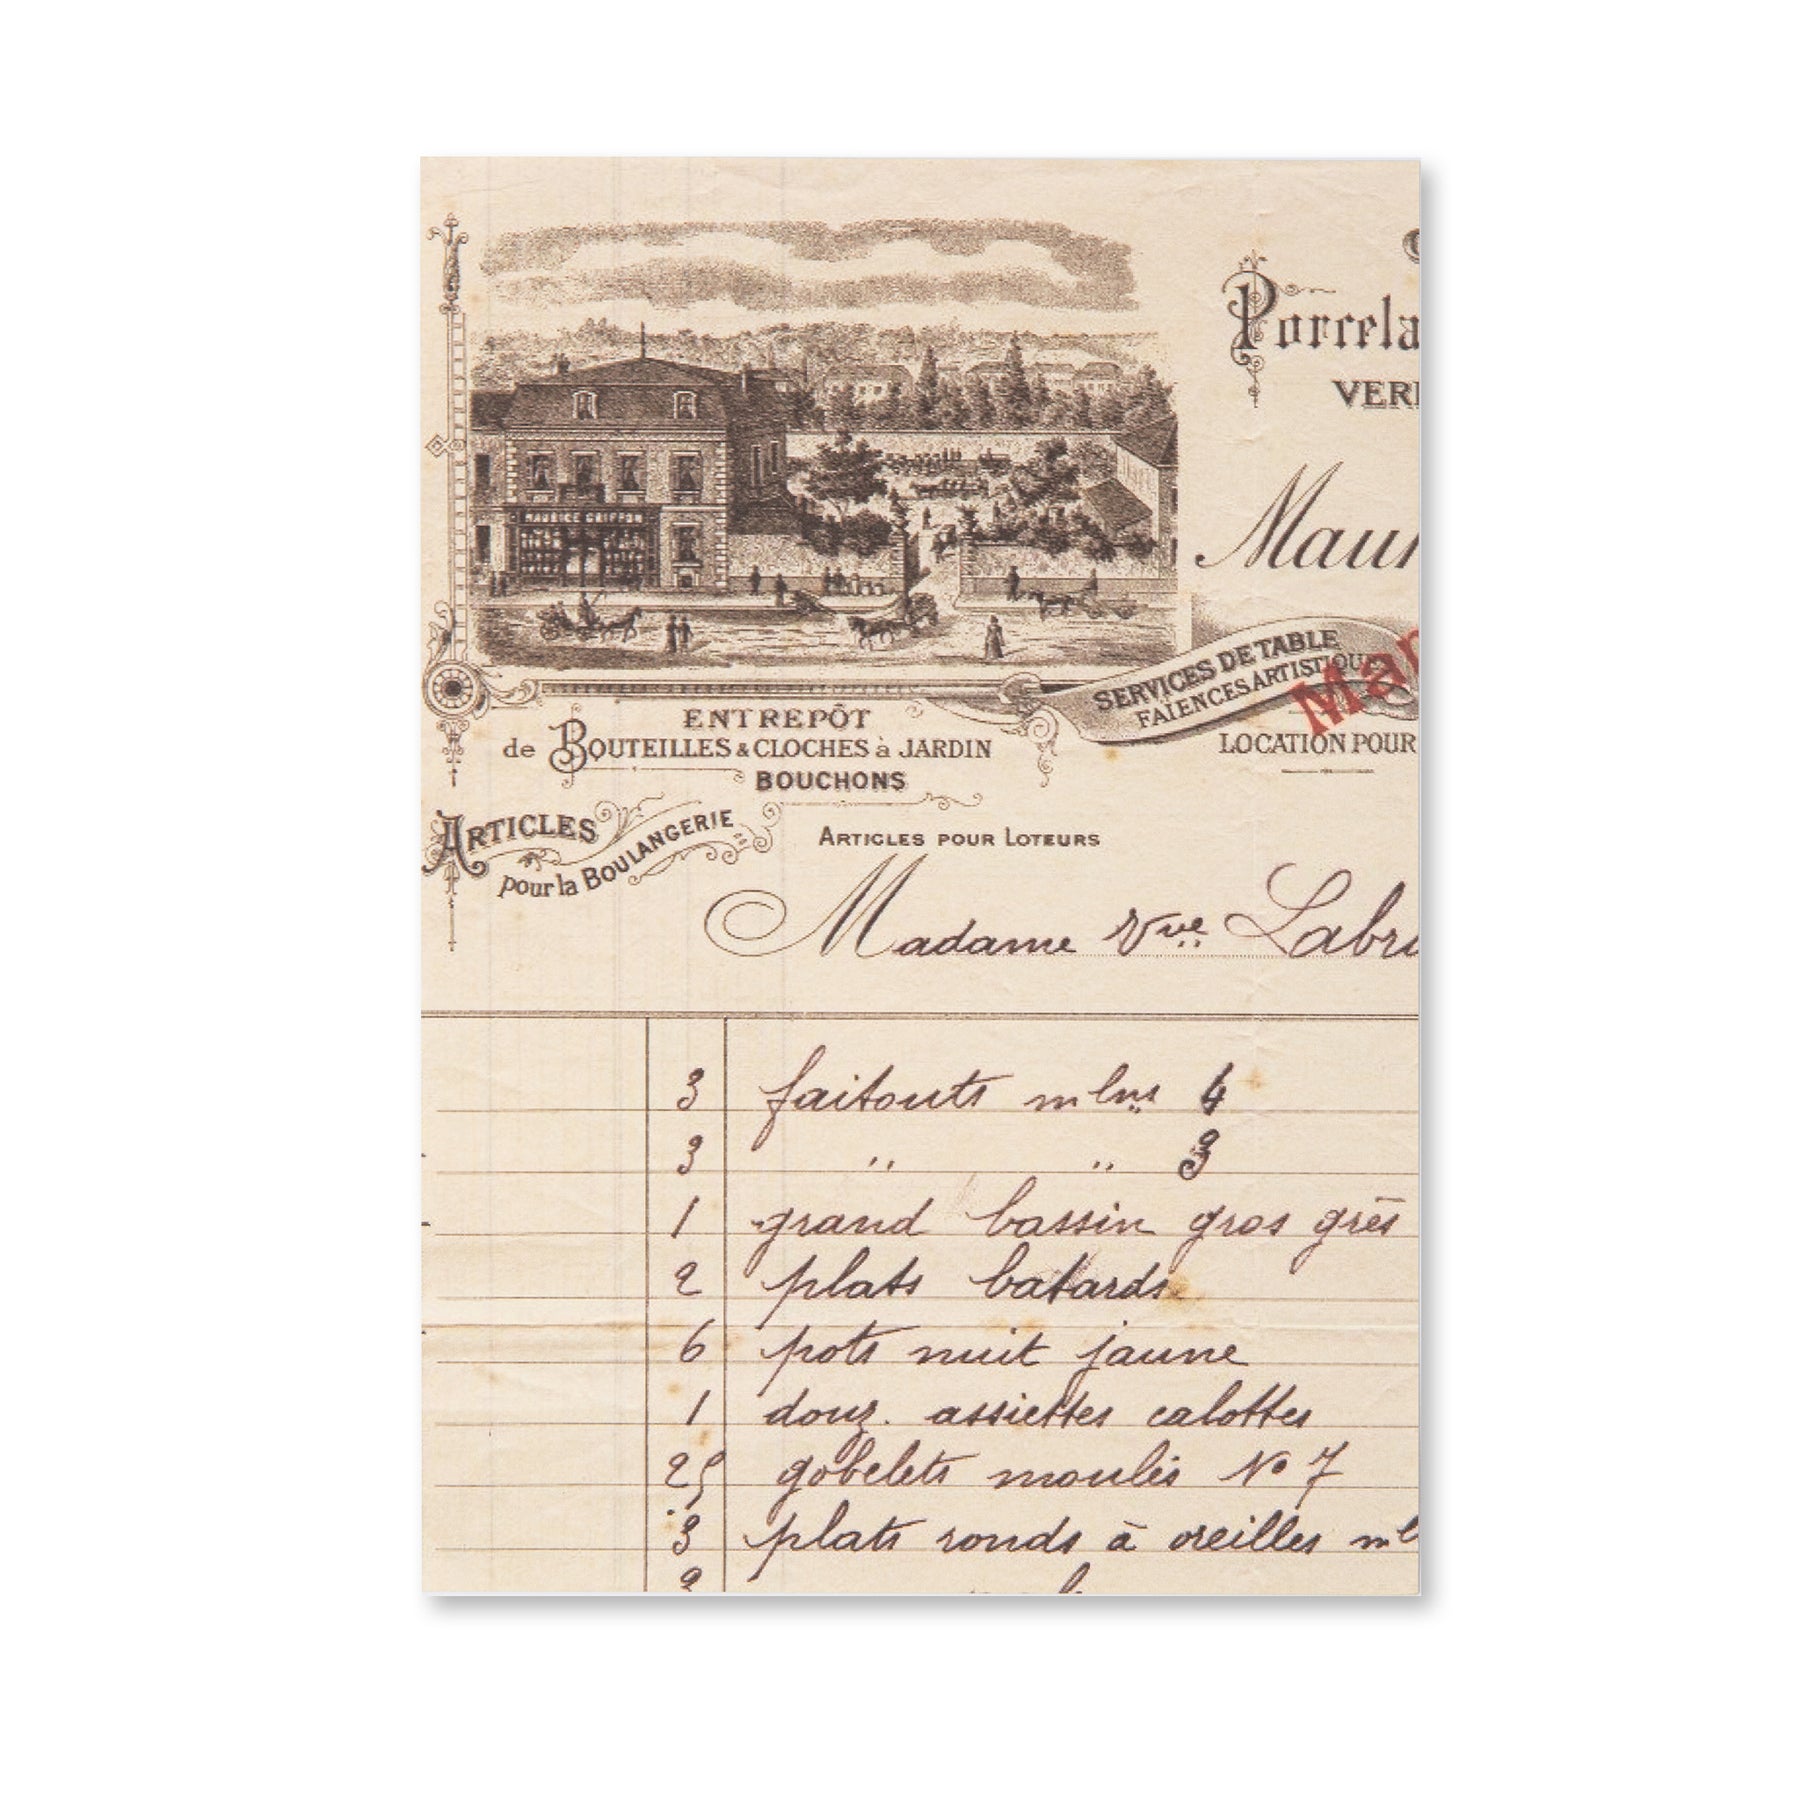 Porcela
VER
MAURICE GRIFFON
Maur
SERVICES DE TABLE
FAIENCES ARTISTIQUE
Mar
LOCATION POUR
ENTREPÔT
de BOUTEILLES & CLOCHES à JARDIN
BOUCHONS
ARTICLES
pour la BOULANGERIE
ARTICLES POUR LOTEURS
Madame Vve Labru
3 faitouts 4
3 " " 3
1 grand bassin gros grès
2 plats batards
6 pots nuit jaune
1 douz. assiettes calottes
25 gobelets moulés No 7
3 plats ronds à oreilles